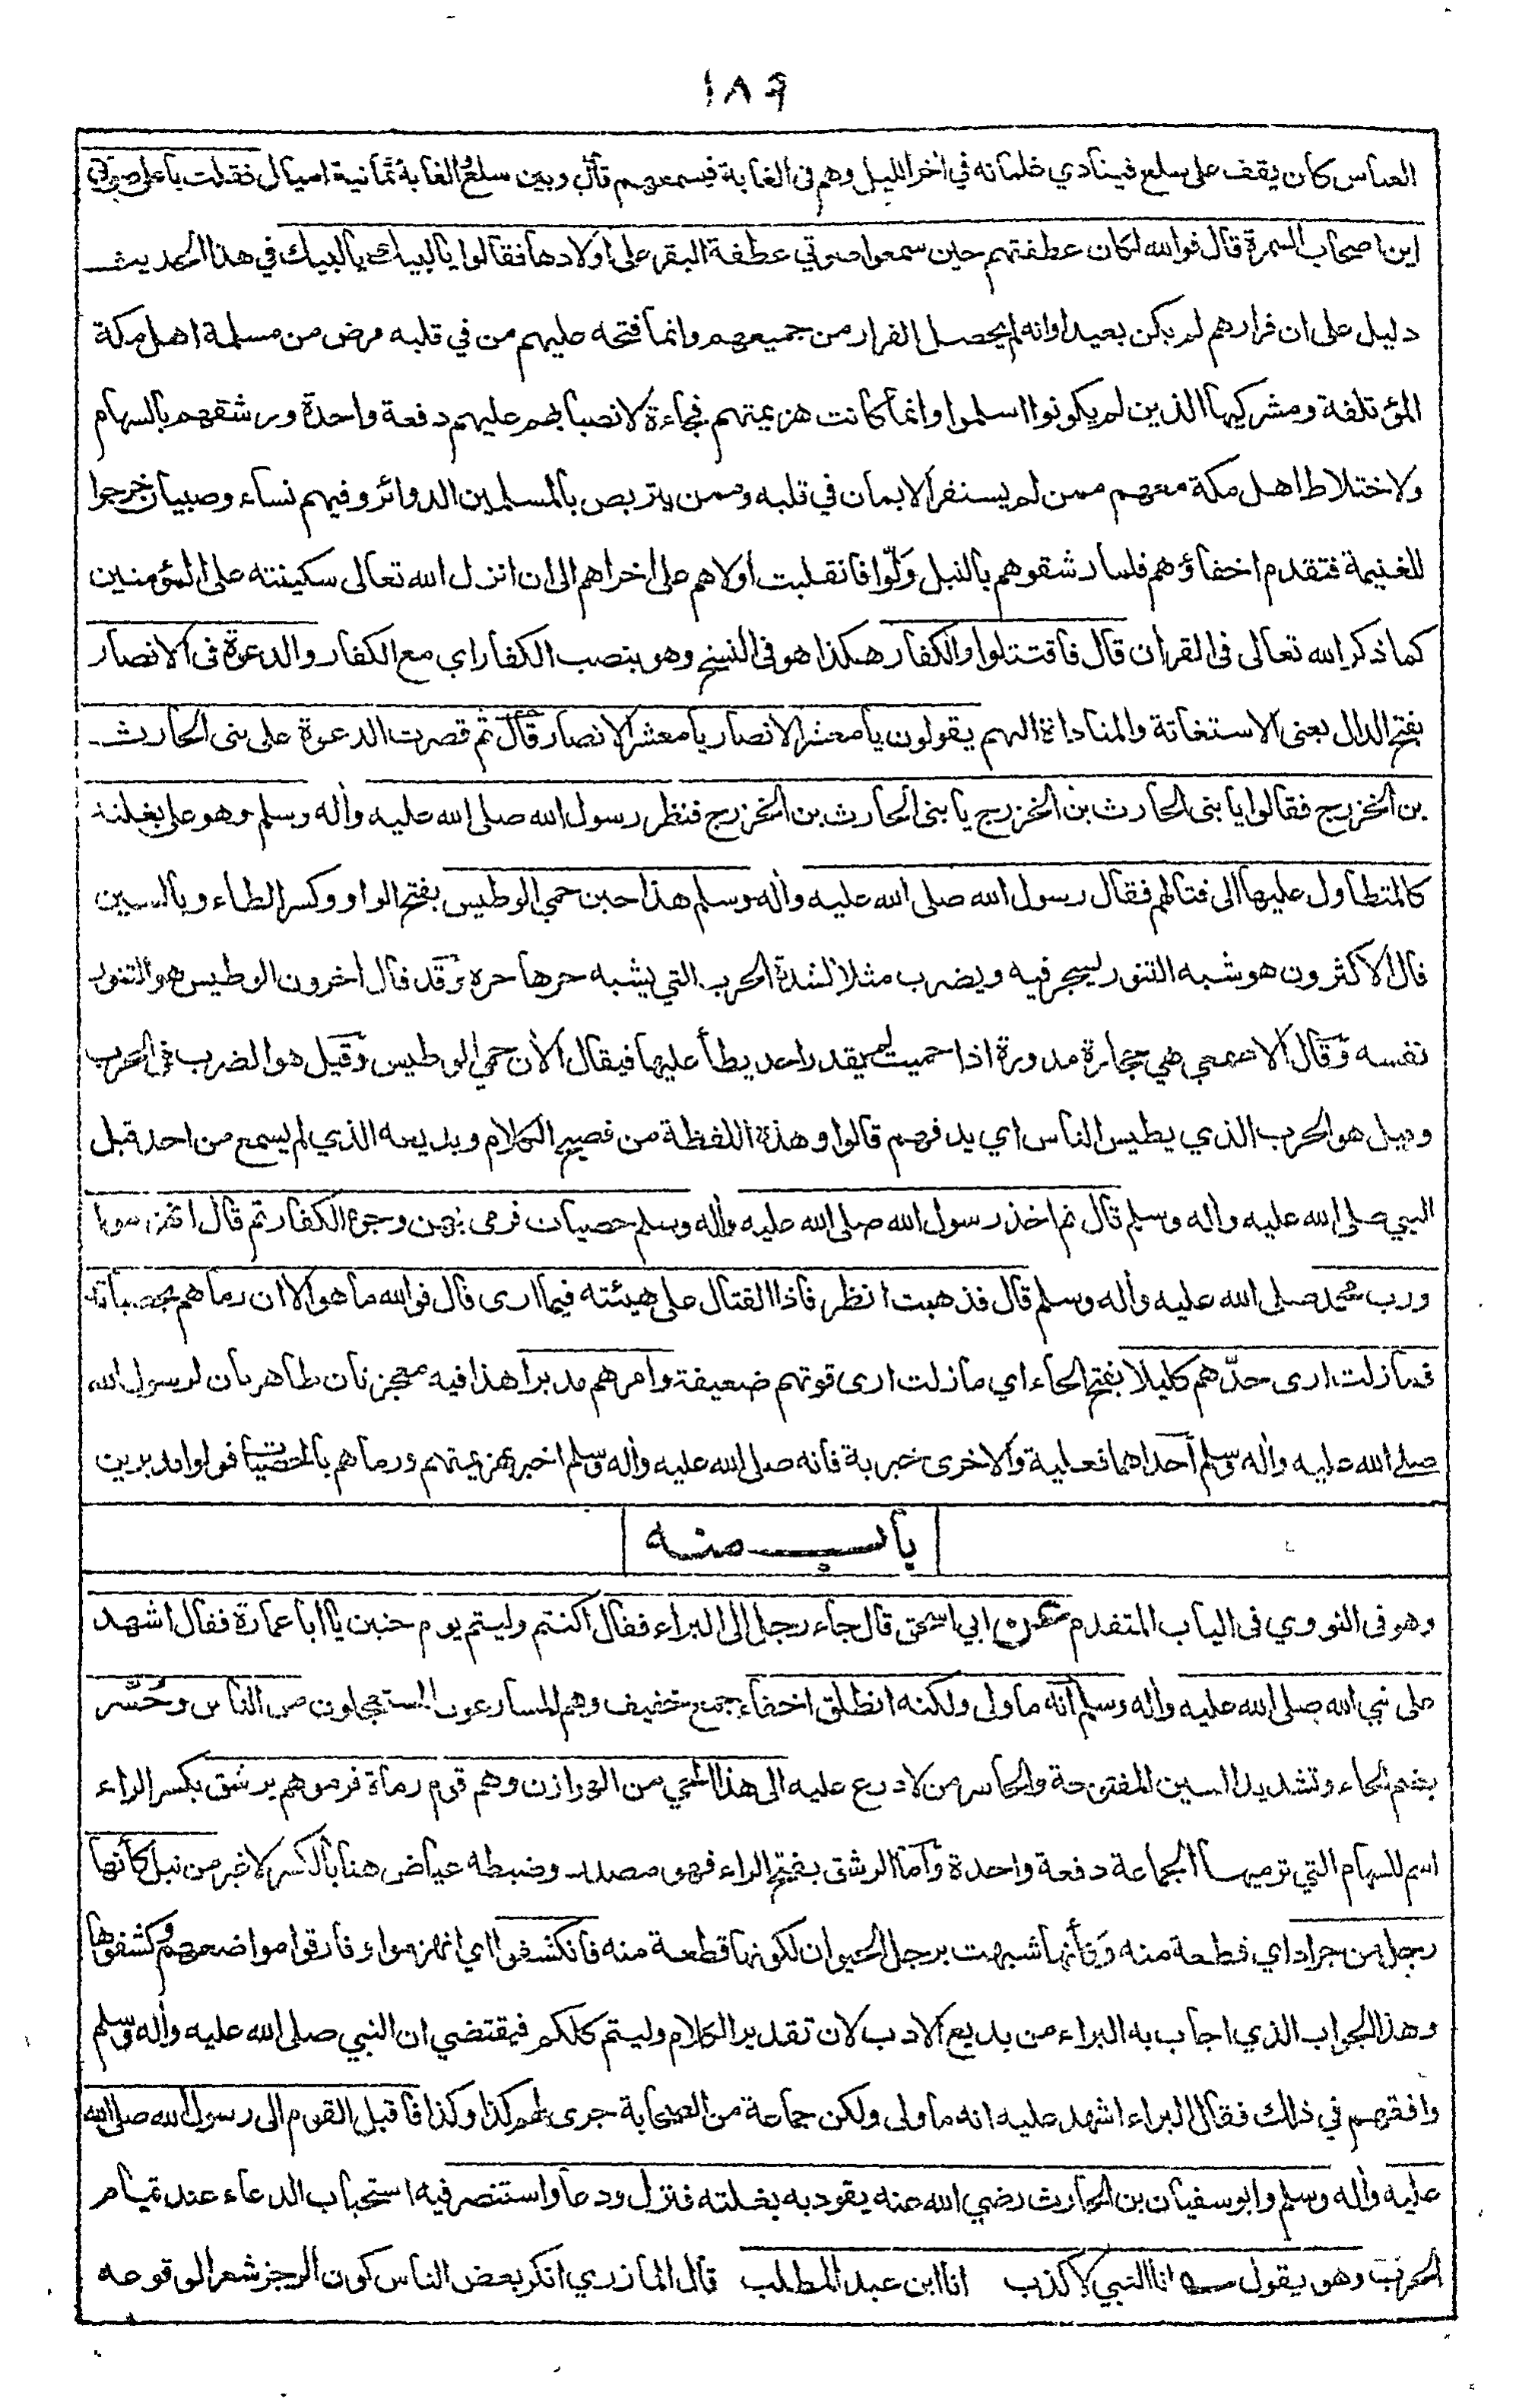 ١٨٦
العباس كان يقف على سلع فينادي غلمانه في اٰخر الليل وهم في الغابة فيسمعهم قال وبين سلع والغابة ثمانية اميال فقلت باعلى صوتي
اين اصحاب السمرة قال فوالله لكان عطفتهم حين سمعوا صوتي عطفة البقر على اولادها فقالوا يا لبيك يا لبيك في هذا الحديث
دليل على ان فرارهم لم يكن بعيدا وانه لم يحصل الفرار من جميعهم وانما فتحه عليهم من في قلبه مرض من مسلمة اهل مكة
المؤتلفة ومشركيها الذين لم يكونوا اسلموا وانما كانت هزيمتهم فجاءة لانصبابهم عليهم دفعة واحدة ورشقهم بالسهام
ولاختلاط اهل مكة معهم ممن لم يستقر الايمان في قلبه وممن يتربص بالمسلمين الدوائر وفيهم نساء وصبيان خرجوا
للغنيمة فتقدم اخفاؤهم فلما رشقوهم بالنبل ولّوا فانقلبت اولاهم على اخراهم الى ان انزل الله تعالى سكينته على المؤمنين
كما ذكر الله تعالى في القران قال فاقتتلوا والكفار هكذا هو في النسخ وهو بنصب الكفار اي مع الكفار والدعوة في الانصار
بفتح الدال يعنى الاستغاثة والمناداة اليهم يقولون يا معشر الانصار يا معشر الانصار قال ثم قصرت الدعوة على بنى الحارث
بن الخزرج فقالوا يا بنى الحارث بن الخزرج يا بنى الحارث بن الخزرج فنظر رسول الله صلى الله عليه واٰله وسلم وهو على بغلته
كالمتطاول عليها الى قتالهم فقال رسول الله صلى الله عليه واٰله وسلم هذا حين حمي الوطيس بفتح الواو وكسر الطاء وبالسين
قال الاكثرون هو شبه التنور يسجر فيه ويضرب مثلا لشدة الحرب التي يشبه حرها حره وقد قال اٰخرون الوطيس هو التنور
نفسه وقال الاصمعي هي حجارة مدورة اذا حميت لم يقدر احد يطأ عليها فيقال الاٰن حمي الوطيس وقيل هو الضرب في الحرب
وقيل هو الحرب الذي يطيس الناس اي يدقهم قالوا وهذه اللفظة من فصيح الكلام وبديعه الذي لم يسمع من احد قبل
النبي صلى الله عليه واٰله وسلم قال ثم اخذ رسول الله صلى الله عليه واٰله وسلم حصيات فرمى بهن وجوه الكفار ثم قال انهزموا
ورب محمد صلى الله عليه واٰله وسلم قال فذهبت انظر فاذا القتال على هيئته فيما ارى قال فوالله ما هو الا ان رماهم بحصياته
فما زلت ارى حدّهم كليلا بفتح الحاء اي ما زلت ارى قوتهم ضعيفة وامرهم مدبرا هذا فيه معجزتان ظاهرتان لرسول الله
صلى الله عليه واٰله وسلم احداهما فعلية والاخرى خبرية فانه صلى الله عليه واٰله وسلم اخبر بهزيمتهم ورماهم بالحصيات فولوا مدبرين
باب منه
وهو في النووي في الباب المتقدم عن ابي اسحق قال جاء رجل الى البراء فقال اكنتم وليتم يوم حنين يا ابا عمارة فقال اشهد
على نبي الله صلى الله عليه واٰله وسلم انه ما ولى ولكنه انطلق اخفاء جمع خفيف وهم المسارعون المستعجلون من الناس وحُسَّر
بضم الحاء وتشديد السين المفتوحة والحاسر من لا درع عليه الى هذا الحي من الهوازن وهم قوم رماة فرموهم برشق بكسر الراء
اسم للسهام التي ترميها الجماعة دفعة واحدة واما الرشق بفتح الراء فهو مصدر وضبطه عياض هنا بالكسر لا غير من نبل كأنها
رجل من جراد اي قطعة منه وكأنها شبهت برجل الحيوان لكونها قطعة منه فانكشفوا اي انهزموا وفارقوا مواضعهم وكشفوها
وهذا الجواب الذي اجاب به البراء من بديع الادب لان تقدير الكلام وليتم كلكم فيقتضي ان النبي صلى الله عليه واٰله وسلم
وافقهم في ذلك فقال البراء اشهد عليه انه ما ولى ولكن جماعة من الصحابة جرى لهم كذا وكذا فاقبل القوم الى رسول الله صلى الله
عليه واٰله وسلم وابو سفيان بن الحارث رضي الله عنه يقود به بغلته فنزل ودعا واستنصر فيه استحباب الدعاء عند قيام
الحرب وهو يقول انا النبي لا كذب انا ابن عبد المطلب قال المازري انكر بعض الناس كون الرجز شعرا لوقوعه